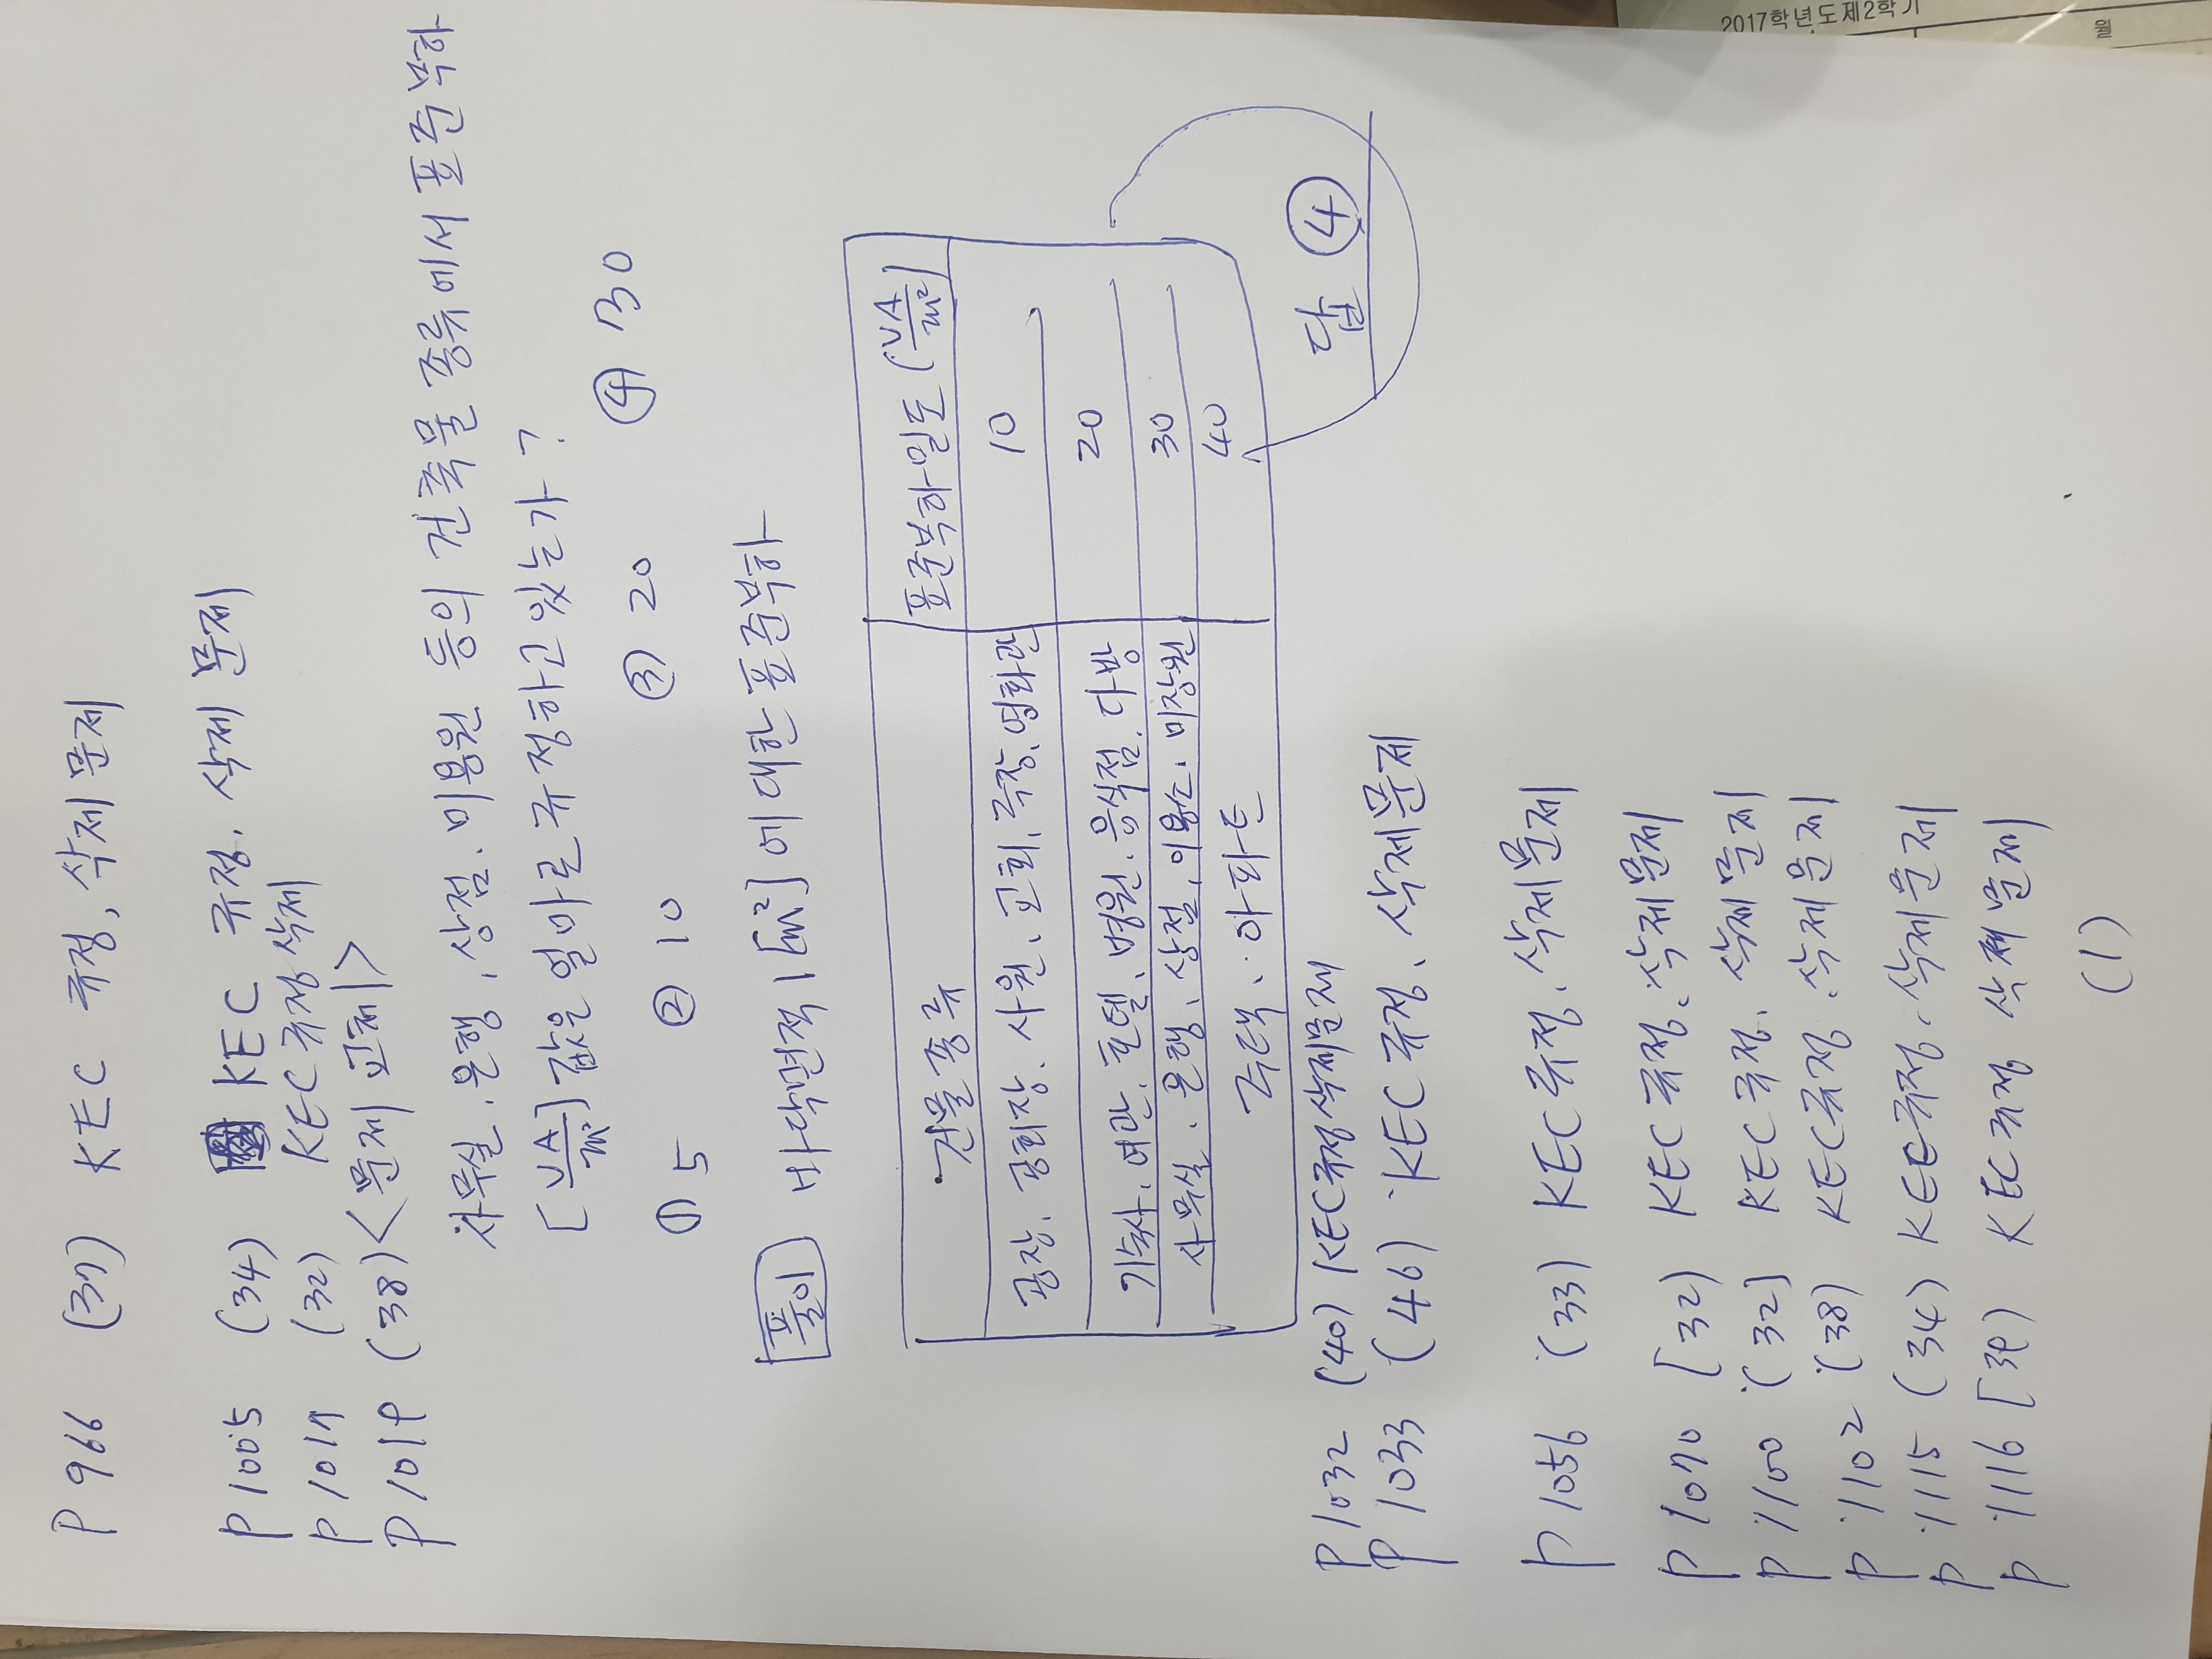 P 966 (37) KEC 규정, 삭제 문제
P 1005 (34) KEC 규정. 삭제 문제
P 1017 (32) KEC 규정 삭제
P 1019 (38) <문제 교체>
사무실. 은행, 상점. 미용원 등의 건축물 종류에서 표준부하
[VA/m²] 값은 얼마로 규정하고 있는가?
① 5 ② 10 ③ 20 ④ 30
풀이 바닥면적 1[m²]에 대한 표준부하
건물종류 표준부하밀도 (VA/m²)
공장. 공회장. 사원. 교회, 극장, 영화관 10
기숙사. 여관. 호텔. 병원. 음식점. 다방 20
사무실. 은행, 상점, 이용소. 미장원 30
주택. 아파트 40
답 ④
P 1032 (40) KEC 규정 삭제문제
P 1033 (46) KEC 규정. 삭제문제
P 1056 (33) KEC 규정. 삭제문제
P 1070 [32) KEC 규정. 삭제문제
P 1100 (32] KEC 규정. 삭제문제
P 1102 (38) KEC 규정. 삭제문제
P 1115 (34) KEC 규정. 삭제문제
P 1116 [39) KEC 규정 삭제 문제
(1)
2017학년도제2학기
월